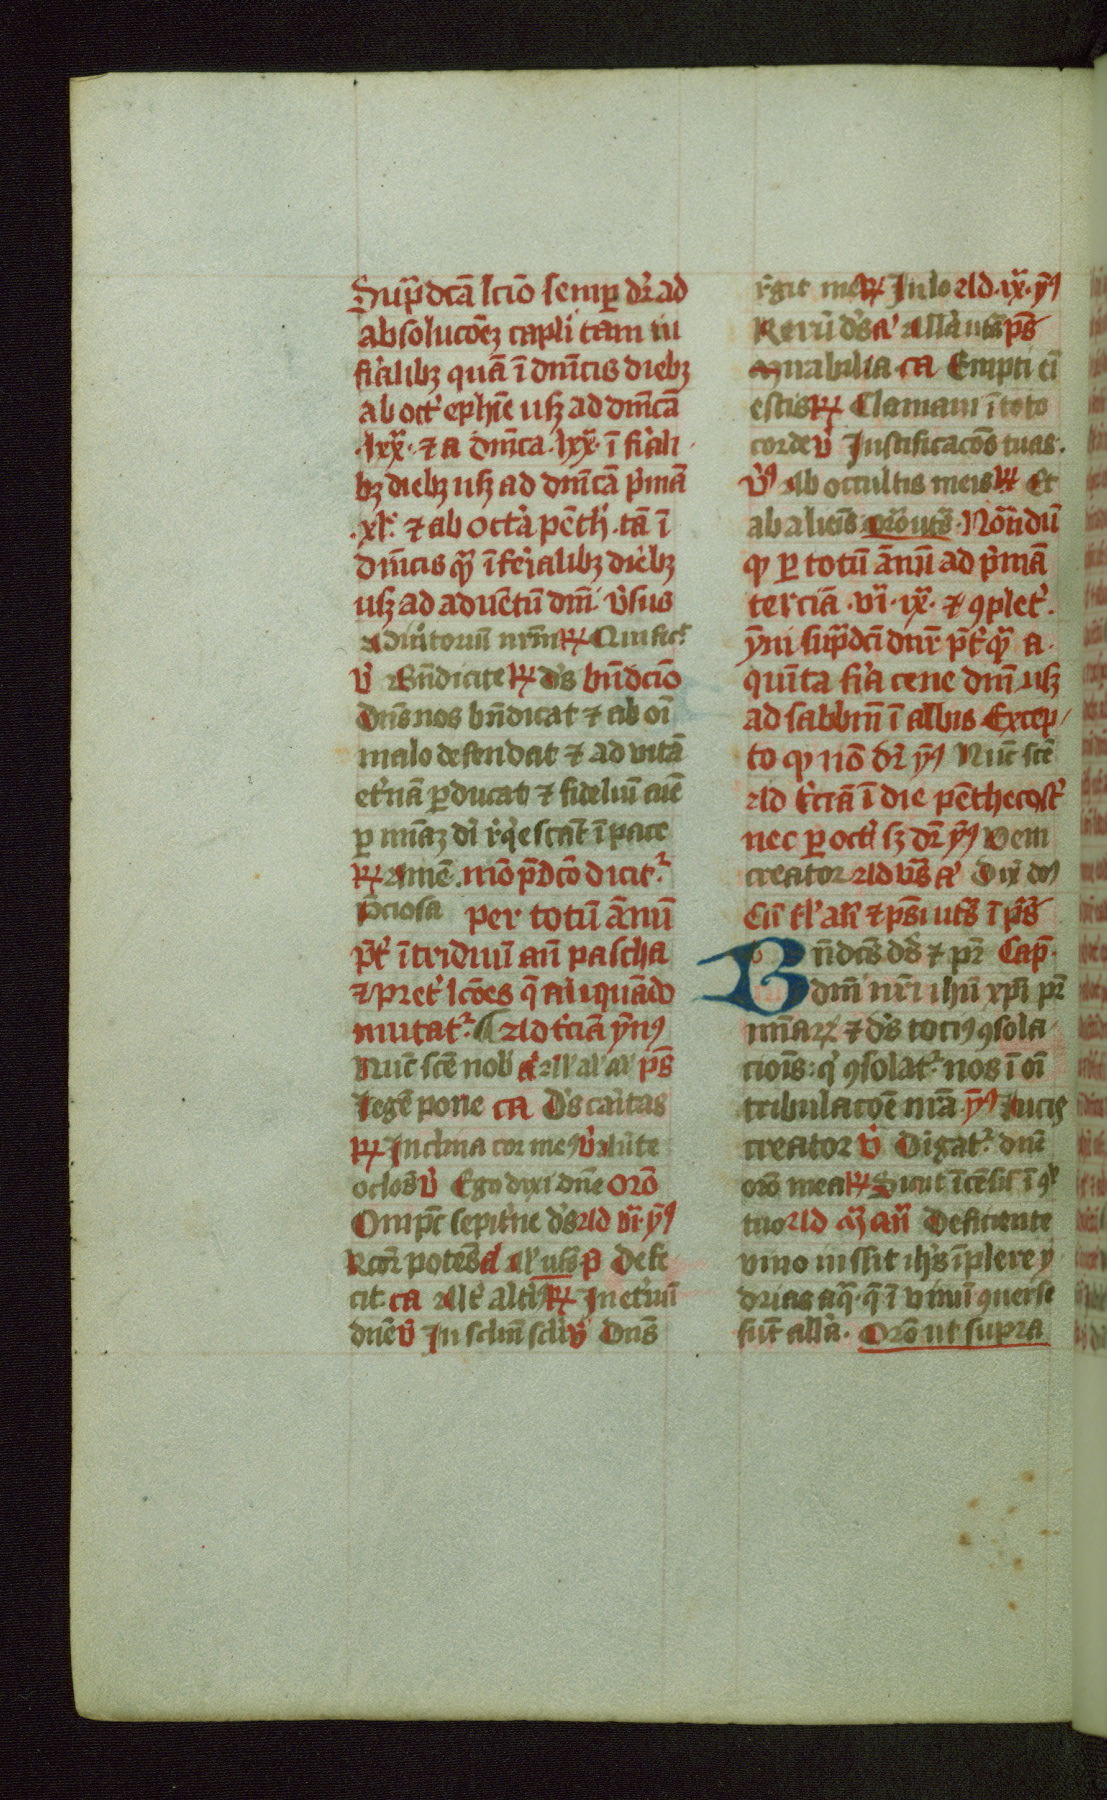 Supͣdcā lcīo semꝑ dr̄ ad
absolucōeꝫ capl̄i tam in
fīalibꝫ quā ī dnīcis diebꝫ
ab oct̄ ephīe usqꝫ ad dnīcā
.lxxͣ. ⁊ a dnīca .lxxͣ. ī fīali
bꝫ diebꝫ usqꝫ ad dnīcā pͥmā
.xlͤ. ⁊ ab octā pēth̄ .tā ī
dnīcis qͣꝫ ī feīalibꝫ diebꝫ
usqꝫ ad aduētū dnī. v̄sus
Adiutoriū nrm̄ ℟ Qui fic̄
v̄ Bn̄dicite ℟ dn̄s bn̄dcīo
Dn̄s nos bn̄dicat ⁊ ab oī
malo defendat ⁊ ad vitā
et̄nā ꝑducat ⁊ fideliū aīe
ꝑ mīaꝫ dī rͤqͥescāt ī pace
℟ Amē. mō pͣdcō dicit̄
Pͨciosa per totū ānū
pͭ ītriduū an̄ pascha
⁊ pret̄ lcōes qͣ aliquādo
mutat̄ Ad t̄ciā ym̄ꝰ
Nūc scē nob̄ a̓ all' al' al' pš
Legē pone ca Ds̄ caritas
℟ Inclina cor meū v̄ Auūte
oclos v̄ Ego dixi dn̄e orō
Omp̄c sepit̄ne ds̄ Ad vī. ymꝰ
Rcōr potēs a̓ al' uts̄ p̄ Defe
cit ca Alt̄ altīꝰ ℟ In et̄nū
dn̄e v̄ In sclm̄ scli v̄ Dn̄s
rͤgit me ℟ In lo Ad .ixͣ. ymꝰ
Rerū ds̄ a̓ allā uts̄ pš
Mirabilia ca Empti eī
estis ℟ Clamaui ī toto
corde v̄ Iustificacōes tuas.
v̄ꝰ Ab occultis meis ℟ Et
ab alieīs orō uts̄. Notandū
qꝫ ꝑ totū ānū ad pͥmā
terciā .vī. ixͣ. ⁊ ꝯplet̄.
ymni supͣdcī dnr̄ pͭqͣꝫ a
quīta fīa cene dnī usqꝫ
ad sabbm̄ ī albis Excep
to qꝫ nō dr̄ ymꝰ Nūc scē
Ad t̄ciā ī die pēthecost̄
nec ꝑ oct̄ sꝫ dr̄ ymꝰ Veni
creator Ad vs̄ a̓ Dix̄ dnꝰ
Cū t'l' an̄ ⁊ ps̄i uts̄ ī ps̄
Bn̄dcš ds̄ ⁊ pr̄ Cap̄.
dnī nrī ihū xp̄i pr̄
mīaꝝ ⁊ ds̄ tociꝰ ꝯsola
cioīs: qͥ ꝯsolat̄ nos ī oī
tribulacōe nrā ymꝰ Lucis
creator v̄ Dīgat̄ dn̄e
orō mea ℟ Sicut īcēsū ī ꝯsͥ
tuo Ad Mͣ an̄ Deficiente
vino iussit ih̄s īplere y
drias aqͣ qͣ ī vinū ꝯuerse
sūt allā. Orō ut supra